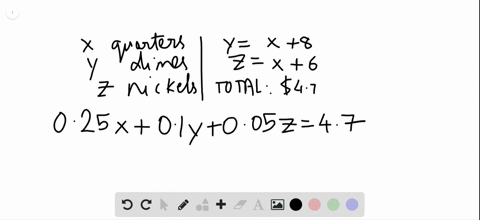 x quarters | y = x + 8
y dimes | z = x + 6
z nickels | TOTAL: $4.7
0.25x + 0.1y + 0.05z = 4.7